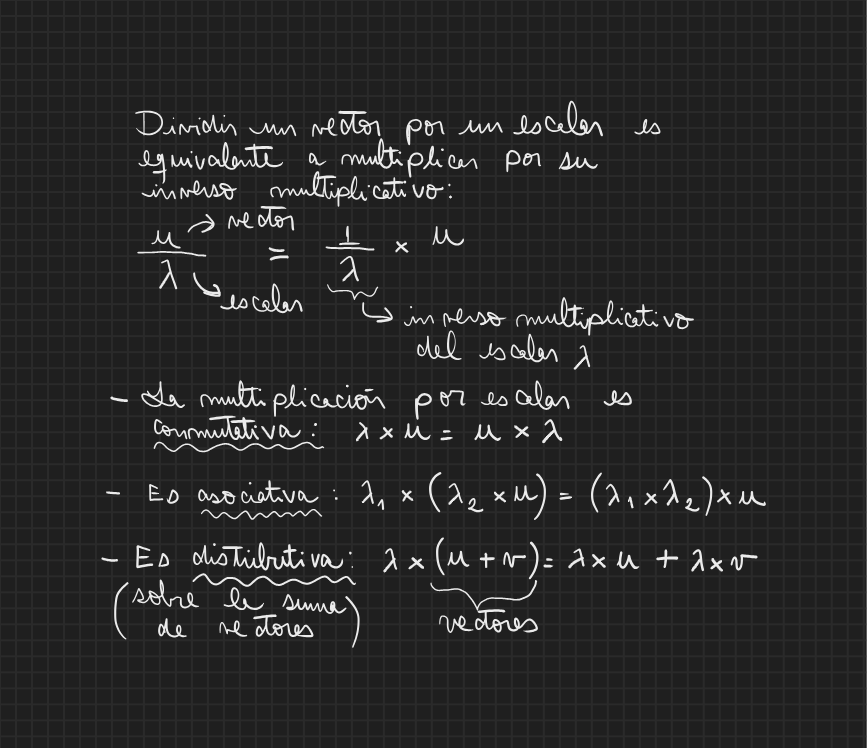 Dividir un vector por un escalar es
equivalente a multiplicar por su
inverso multiplicativo:
u → vector
— = 1/λ × u
λ → escalar
→ inverso multiplicativo
del escalar λ
- La multiplicación por escalar es
conmutativa: λ × u = u × λ
- Es asociativa: λ₁ × (λ₂ × u) = (λ₁ × λ₂) × u
- Es distributiva: λ × (u + v) = λ × u + λ × v
(sobre la suma
de vectores)
vectores